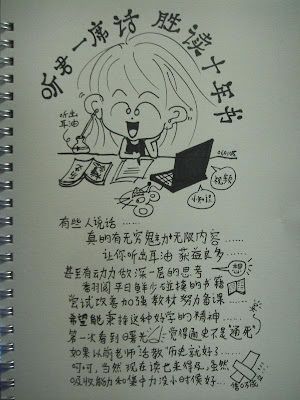 听君一席话 胜读十年书
听出
耳油
视频
小知识
有些人说话……
真的有无穷魅力 无限内容……
让你听出耳油 获益良多……
甚至有动力做深一层的思考
翻阅平日鲜少碰摸的书籍
尝试改善加强教材 努力备课……
希望能秉持这种好学的精神……
第一次看到曙光 觉得通也不是“通死”
如果以前老师活教历史就好了……
呵呵，当然现在读也来得及，虽然
吸收能力和集中力没小时候好…